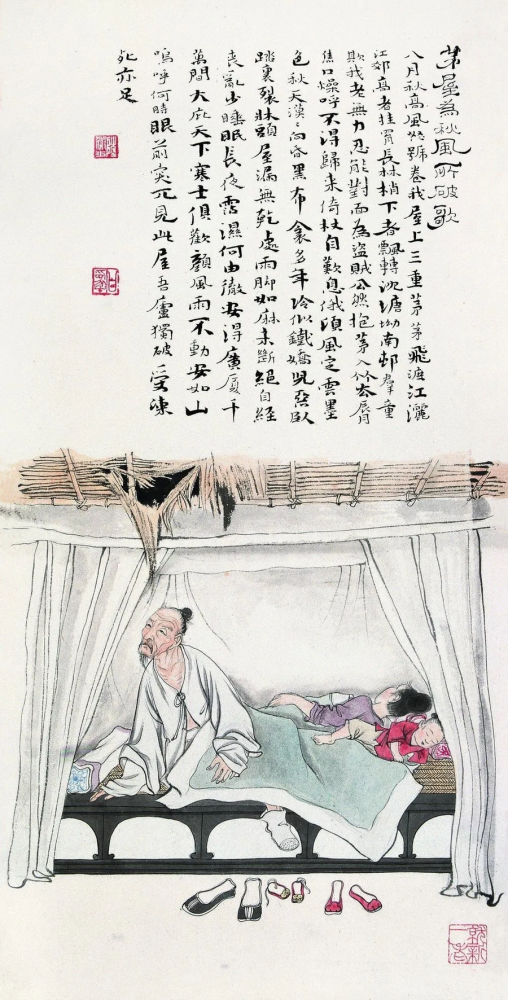 茅屋為秋風所破歌
八月秋高風怒號卷我屋上三重茅茅飛渡江灑
江郊高者挂罥長林梢下者飄轉沈塘坳南邨羣童
欺我老無力忍能對面為盜賊公然抱茅入竹去脣
焦口燥呼不得歸來倚杖自歎息俄頃風定雲墨
色秋天漠々向昏黑布衾多年冷似鐵嬌兒惡臥
踏裏裂牀頭屋漏無乾處雨脚如麻未斷絕自經
喪亂少睡眠長夜霑濕何由徹安得廣厦千
萬間大庇天下寒士俱歡顏風雨不動安如山
嗚呼何時眼前突兀見此屋吾廬獨破受凍
死亦足